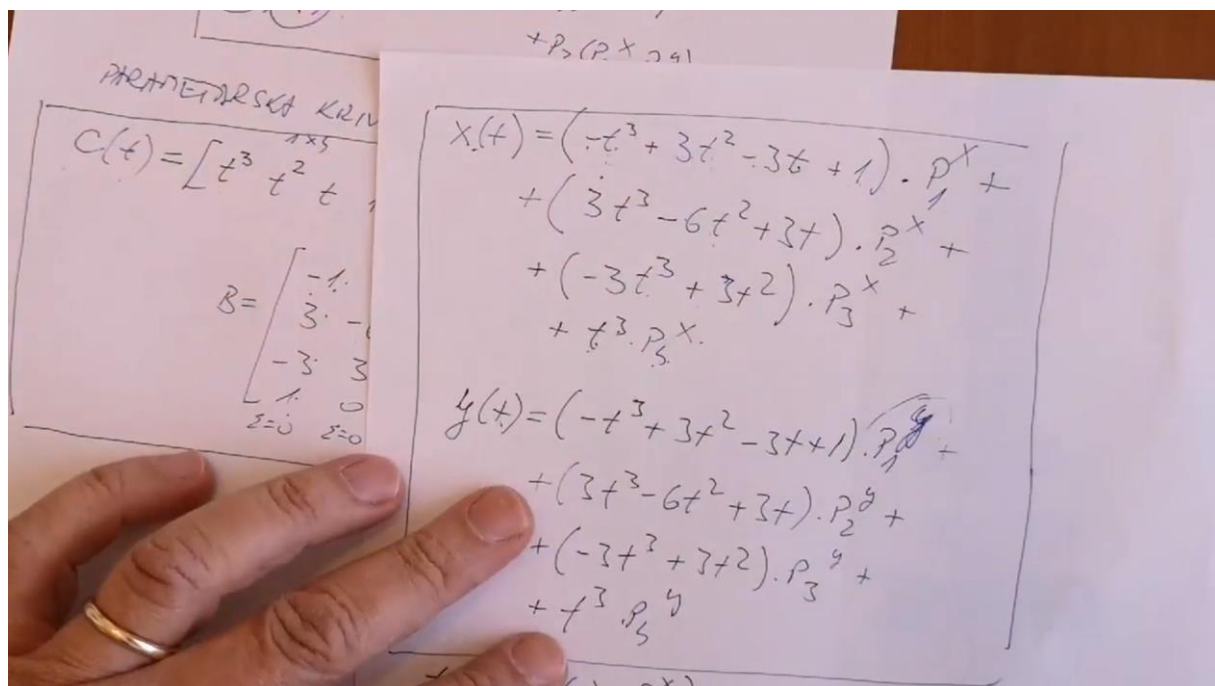 +P₂(P₂ˣ
PARAMETARSKA KRIV
1×4
C(t) = [t³ t² t 1
B= [ -1
3 -6
-3 3
1 0
Σ=0 Σ=0
x(t) = (-t³ + 3t² - 3t + 1) · P₁ˣ +
+ (3t³ - 6t² + 3t) · P₂ˣ +
+ (-3t³ + 3t²) · P₃ˣ +
+ t³ · P₄ˣ.
y(t) = (-t³ + 3t² - 3t + 1) · P₁ʸ +
+ (3t³ - 6t² + 3t) · P₂ʸ +
+ (-3t³ + 3t²) · P₃ʸ +
+ t³ P₄ʸ